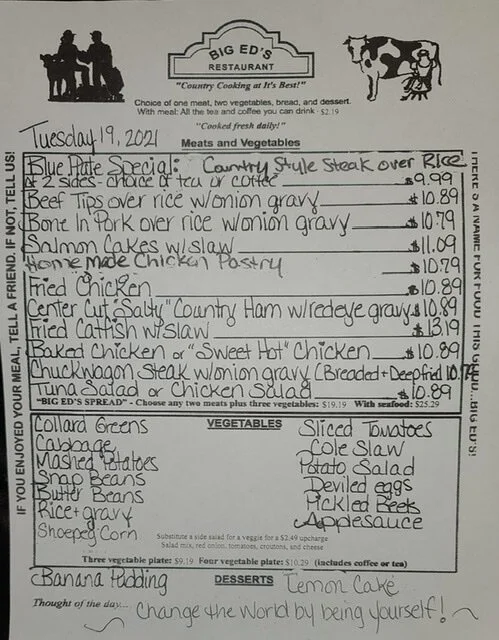 BIG ED'S
RESTAURANT
"Country Cooking at It's Best!"
Choice of one meat, two vegetables, bread, and dessert.
With meal: All the tea and coffee you can drink - $2.19
"Cooked fresh daily!"
Tuesday 19, 2021
Meats and Vegetables
Blue Plate Special: Country Style Steak over Rice
& 2 sides - choice of tea or coffee $9.99
Beef Tips over rice w/onion gravy $10.89
Bone In Pork over rice w/onion gravy $10.79
Salmon Cakes w/slaw $11.09
Home Made Chicken Pastry $10.79
Fried Chicken $10.89
Center Cut "Salty" Country Ham w/redeye gravy $10.89
Fried Catfish w/slaw $13.19
Baked Chicken or "Sweet Hot" Chicken $10.89
Chuckwagon Steak w/onion gravy (Breaded + Deepfried 10.79
Tuna Salad or Chicken Salad $10.89
"BIG ED'S SPREAD" - Choose any two meats plus three vegetables: $19.19 With seafood: $25.29
IF YOU ENJOYED YOUR MEAL, TELL A FRIEND. IF NOT, TELL US!
THERE'S A NAME FOR FOOD THIS GOOD...BIG ED'S!
VEGETABLES
Collard Greens
Cabbage
Mashed Potatoes
Snap Beans
Butter Beans
Rice + gravy
Shoepeg Corn
Sliced Tomatoes
Cole Slaw
Potato Salad
Deviled eggs
Pickled Beets
Applesauce
Substitute a side salad for a veggie for a $2.49 upcharge
Salad mix, red onion, tomatoes, croutons, and cheese
Three vegetable plate: $9.19 Four vegetable plate: $10.29 (includes coffee or tea)
Banana Pudding DESSERTS Lemon Cake
Thought of the day... Change the World by being yourself!